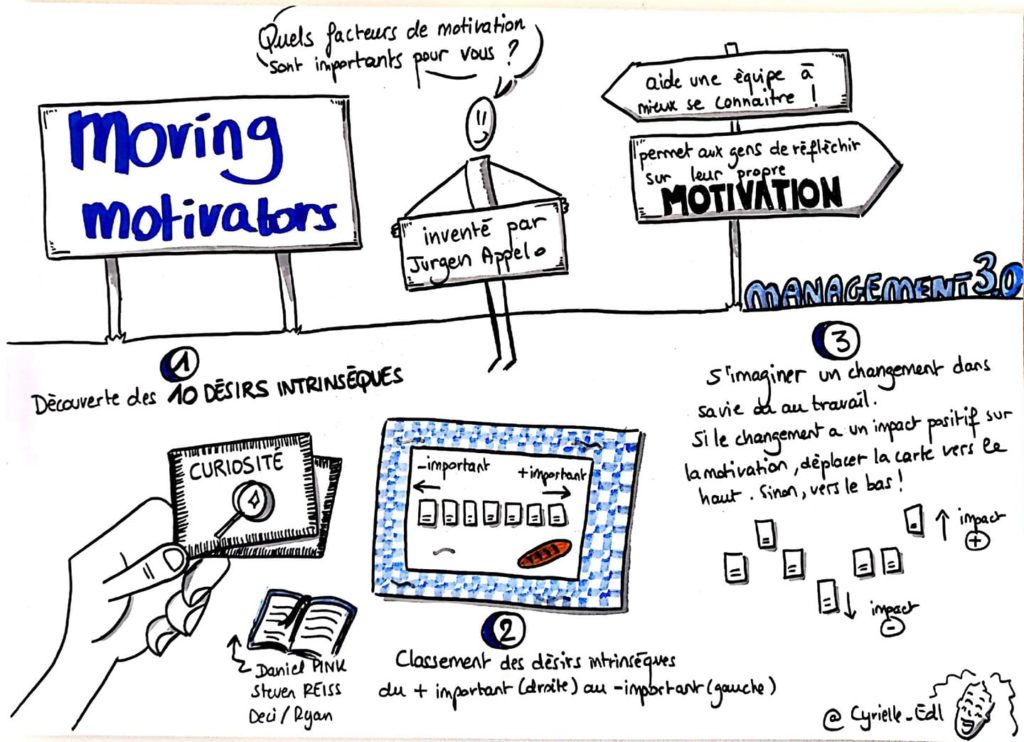 Quels facteurs de motivation
sont importants pour vous ?
moving
motivators
inventé par
Jurgen Appelo
aide une équipe à
mieux se connaitre !
permet aux gens de réfléchir
sur leur propre
MOTIVATION
MANAGEMENT 3.0
1
Découverte des 10 DÉSIRS INTRINSÈQUES
CURIOSITÉ
Daniel PINK
Steven REISS
Deci / Ryan
-important
+important
2
Classement des désirs intrinsèques
du + important (droite) au -important (gauche)
3
S'imaginer un changement dans
sa vie ou au travail.
Si le changement a un impact positif sur
la motivation, déplacer la carte vers le
haut. Sinon, vers le bas !
impact
+
impact
-
@ Cyrielle_Edl